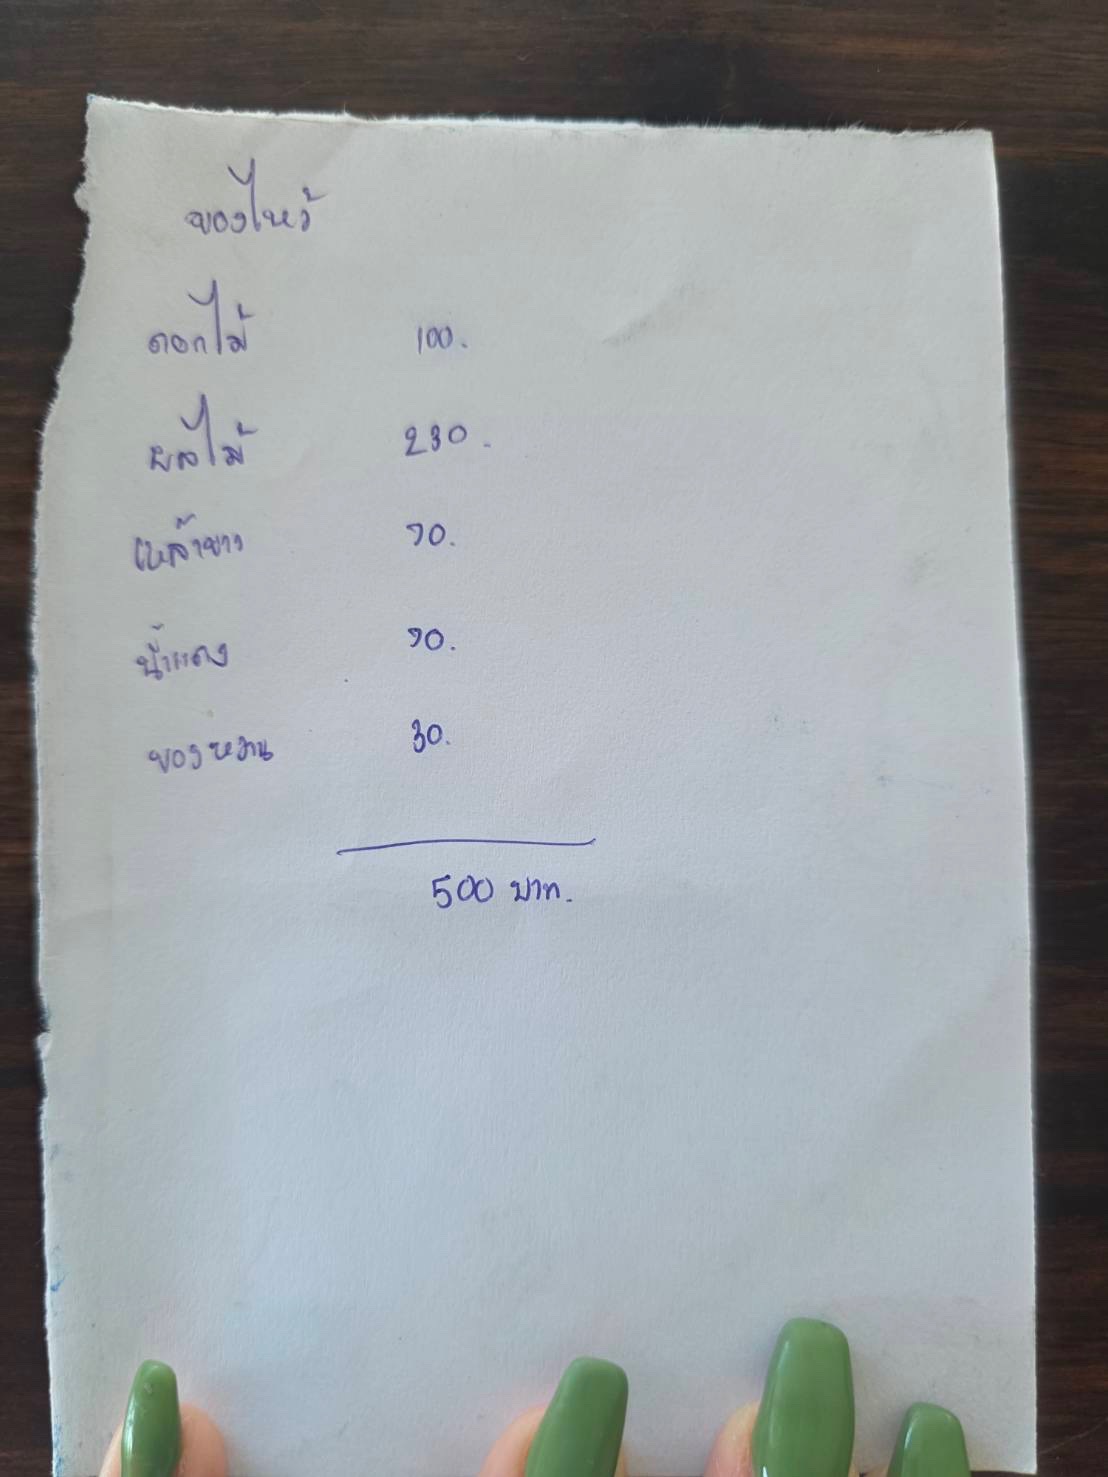 ของไหว้
ดอกไม้ 100.
ผลไม้ 230.
เหล้าขาว 70.
น้ำแดง 70.
ของหวาน 30.
500 บาท.